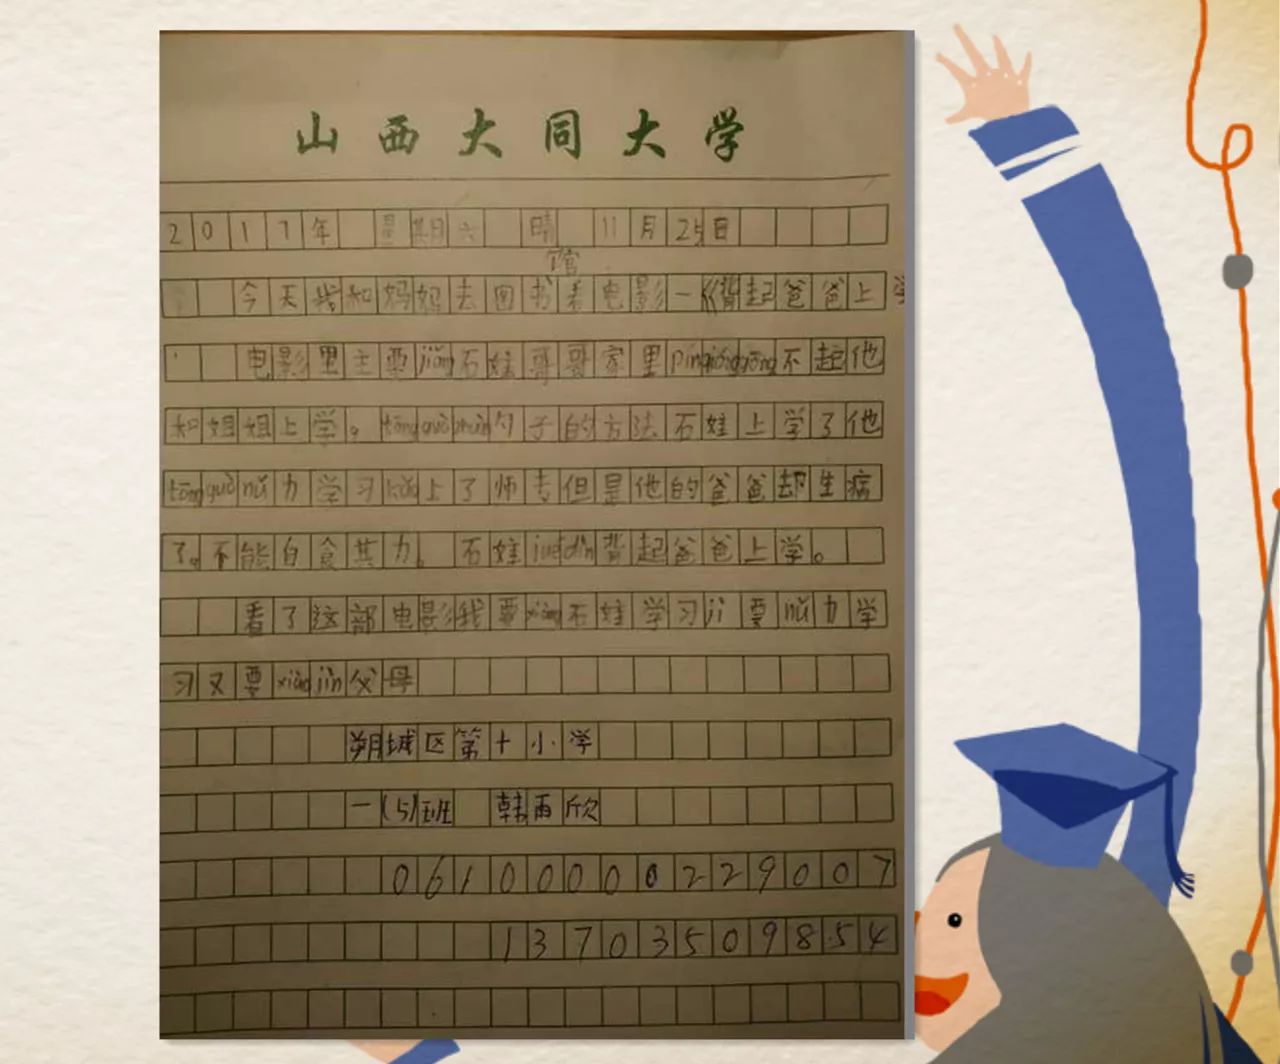 山西大同大学
2017年 星期六 晴 11月25日
馆
今天我和妈妈去图书看电影一《背起爸爸上学
电影里主要jiǎng石娃哥哥家里pínqióng gōng不起他
和姐姐上学。tōng guò zhuā勾子的方法石娃上学了他
tōng guò nǔ力学习kǎo上了师专但是他的爸爸却生病
了。不能自食其力。石娃jué dìn背起爸爸上学。
看了这部电影我要xiàng石娃学习jì要nǔ力学
习又要xiào jìn父母
朔城区第十小学
一(5)班 韩雨欣
06100000229007
13703509854